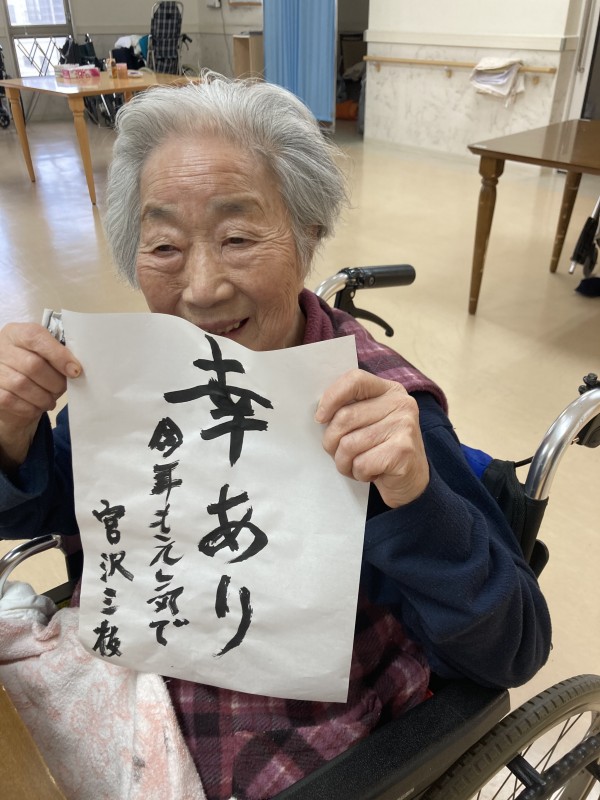 幸あり
今年も元気で
宮沢三枝